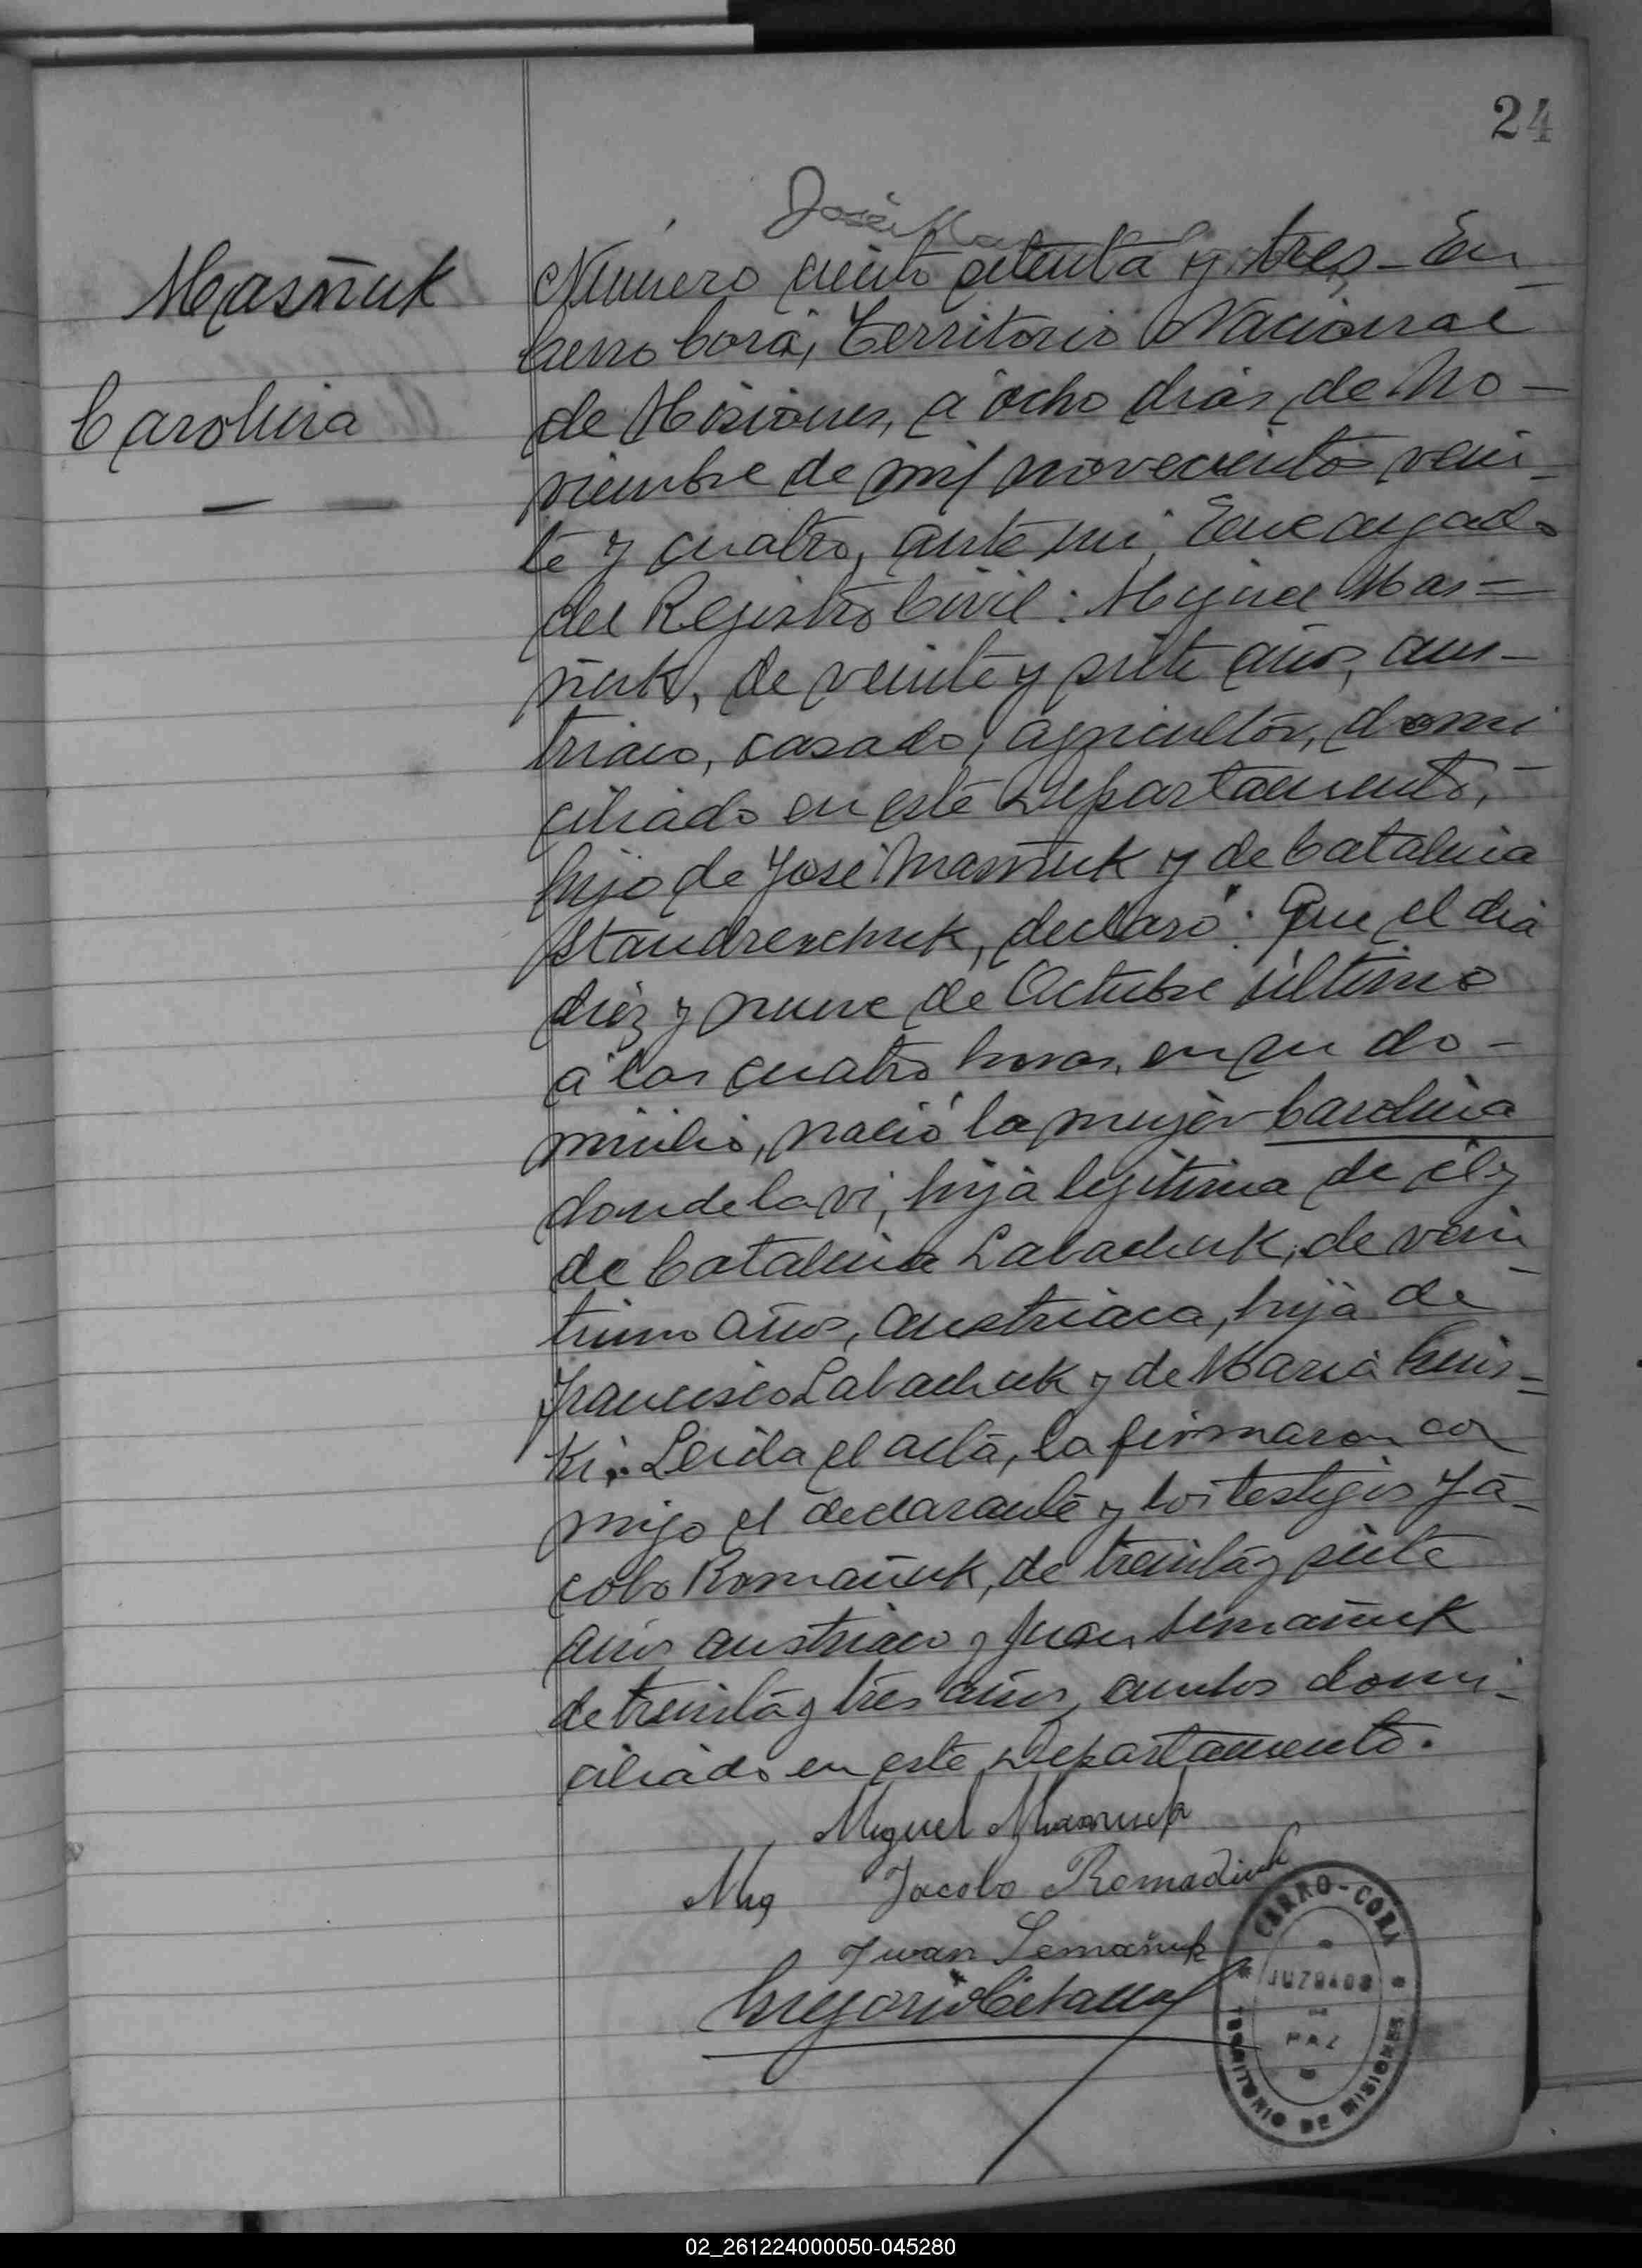 24
José
Masñuk
Carolina
Numero ciento setenta y tres - En
Cerro Corá, Territorio Nacional
de Misiones, a ocho dias de No-
viembre de mil novecientos vein-
te y cuatro, ante mi, Encargado
del Registro Civil: Miguel Mas=
ñuk, de veinte y siete años, aus-
triaco, casado, agricultor, domi-
ciliado en este Departamento,
hijo de José Masñuk y de Catalina
declaró: Que el dia
diez y nueve de Octubre último
a las cuatro horas, en su do-
micilio, nació la mujer Carolina
donde la vi, hija legitima de él y
de Catalina Labachuk, de vein-
tiuno años, austriaca, hija de
Francisco Labachuk y de Maria
ki. Leida el acta, la firmaron con-
migo el declarante y los testigos Ja-
cobo Romañuk, de treinta y siete
años austriaco y Juan Semañuk
de treinta y tres años, ambos domi-
ciliado en este Departamento.
Miguel Masnuk
Mig Jacobo Romaniuk
Juan Semañuk
Gregorio
CERRO-CORÁ
JUZGADO
DE
PAZ
TERRITORIO DE MISIONES
02_261224000050-045280